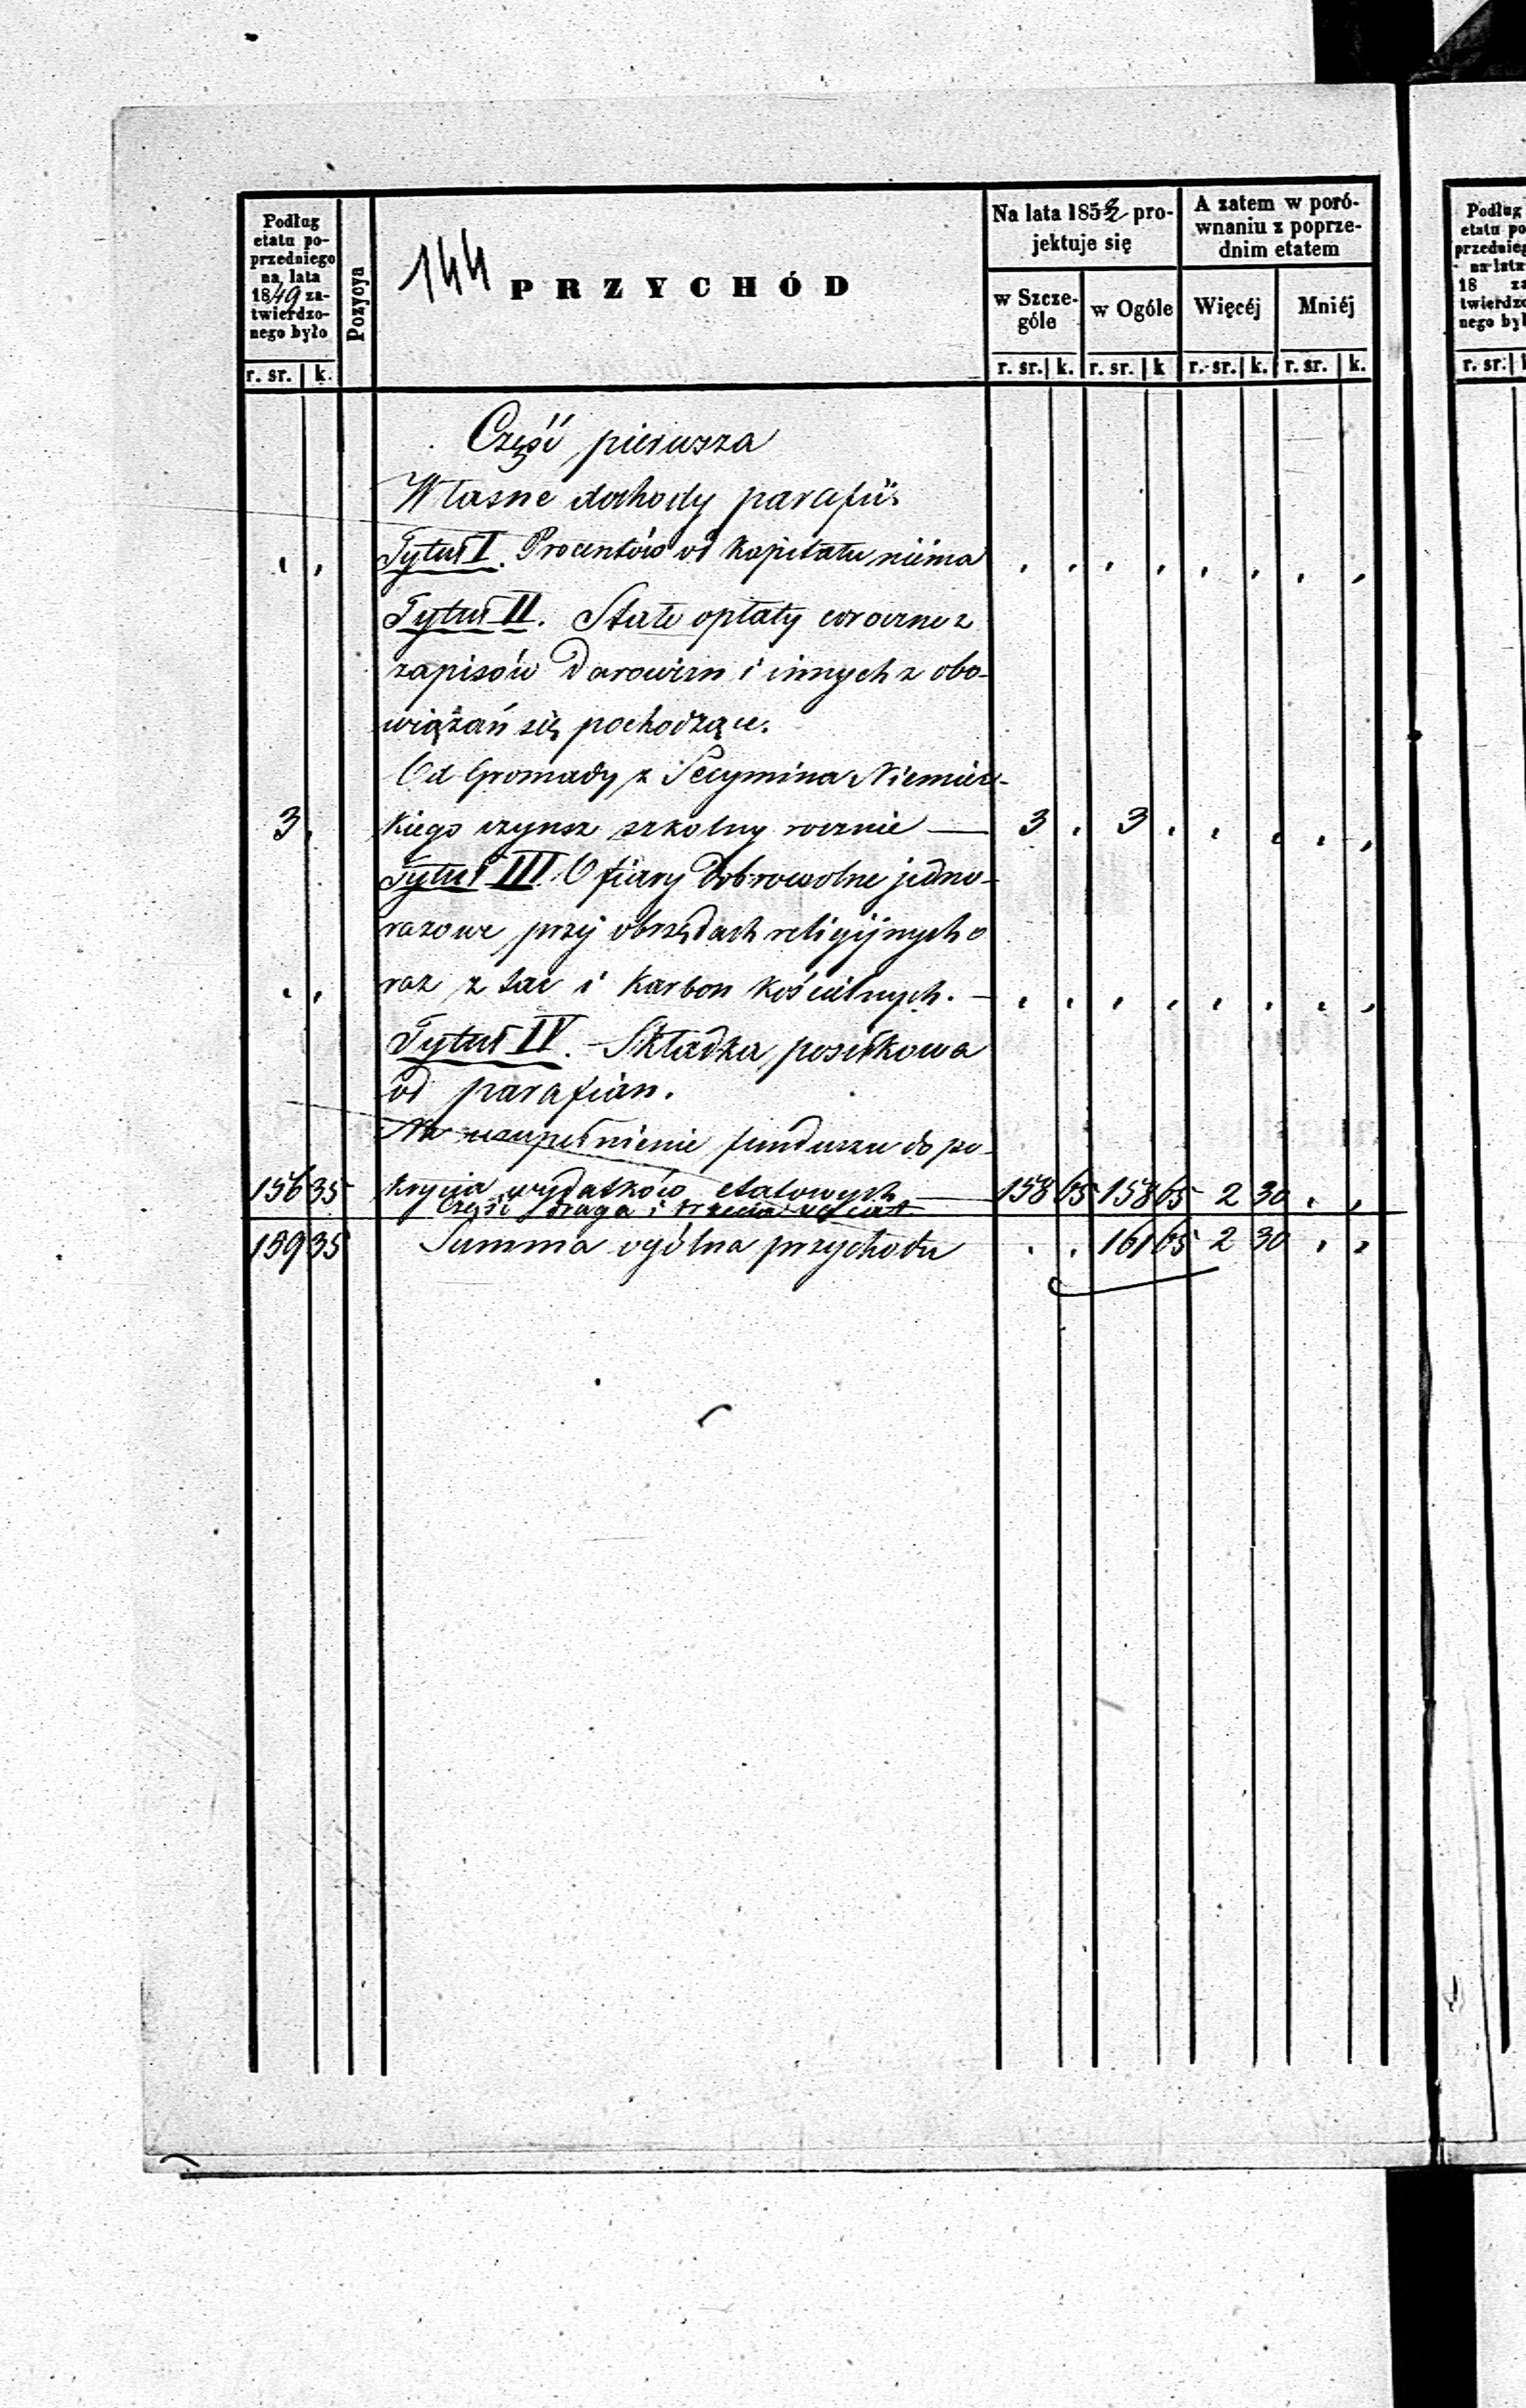 Podług etatu poprzedniego na lata 1849 zatwierdzonego było
r. sr. | k.
Pozycya
144 PRZYCHÓD
Na lata 185 projektuje się
w Szczególe
r. sr. | k.
w Ogóle
r. sr. | k
A zatem w porównaniu z poprzednim etatem
Więcéj
r. sr. | k.
Mniéj
r. sr. | k.
Część pierwsza
Własne dochody parafii.
Tytuł I. Procentów od Kapitału niéma
Tytuł II. Stałe opłaty coroczne z
zapisów Darowizn i innych z obo-
wiązań się pochodzące.
Od Gromady z Secymina Niemiec-
3 . kiego czynsz szkolny rocznie — 3 . 3 .
Tytuł III. Ofiary Dobrowolne jedno-
razowe przy obrzędach religijnych o
raz z tac i Karbon Kościelnych. —
Tytuł IV. Składka posiłkowa
od parafian.
Na uzupełnienie funduszu do po-
156 35 krycia wydatków etatowych — 158 65 158 65 2 30
Część Druga i trzecia
159 35 Summa ogólna przychodu . . 161 65 2 30
Podług
etatu po
przednieg
na lata
18 za
twierdzo
nego był
r. sr.